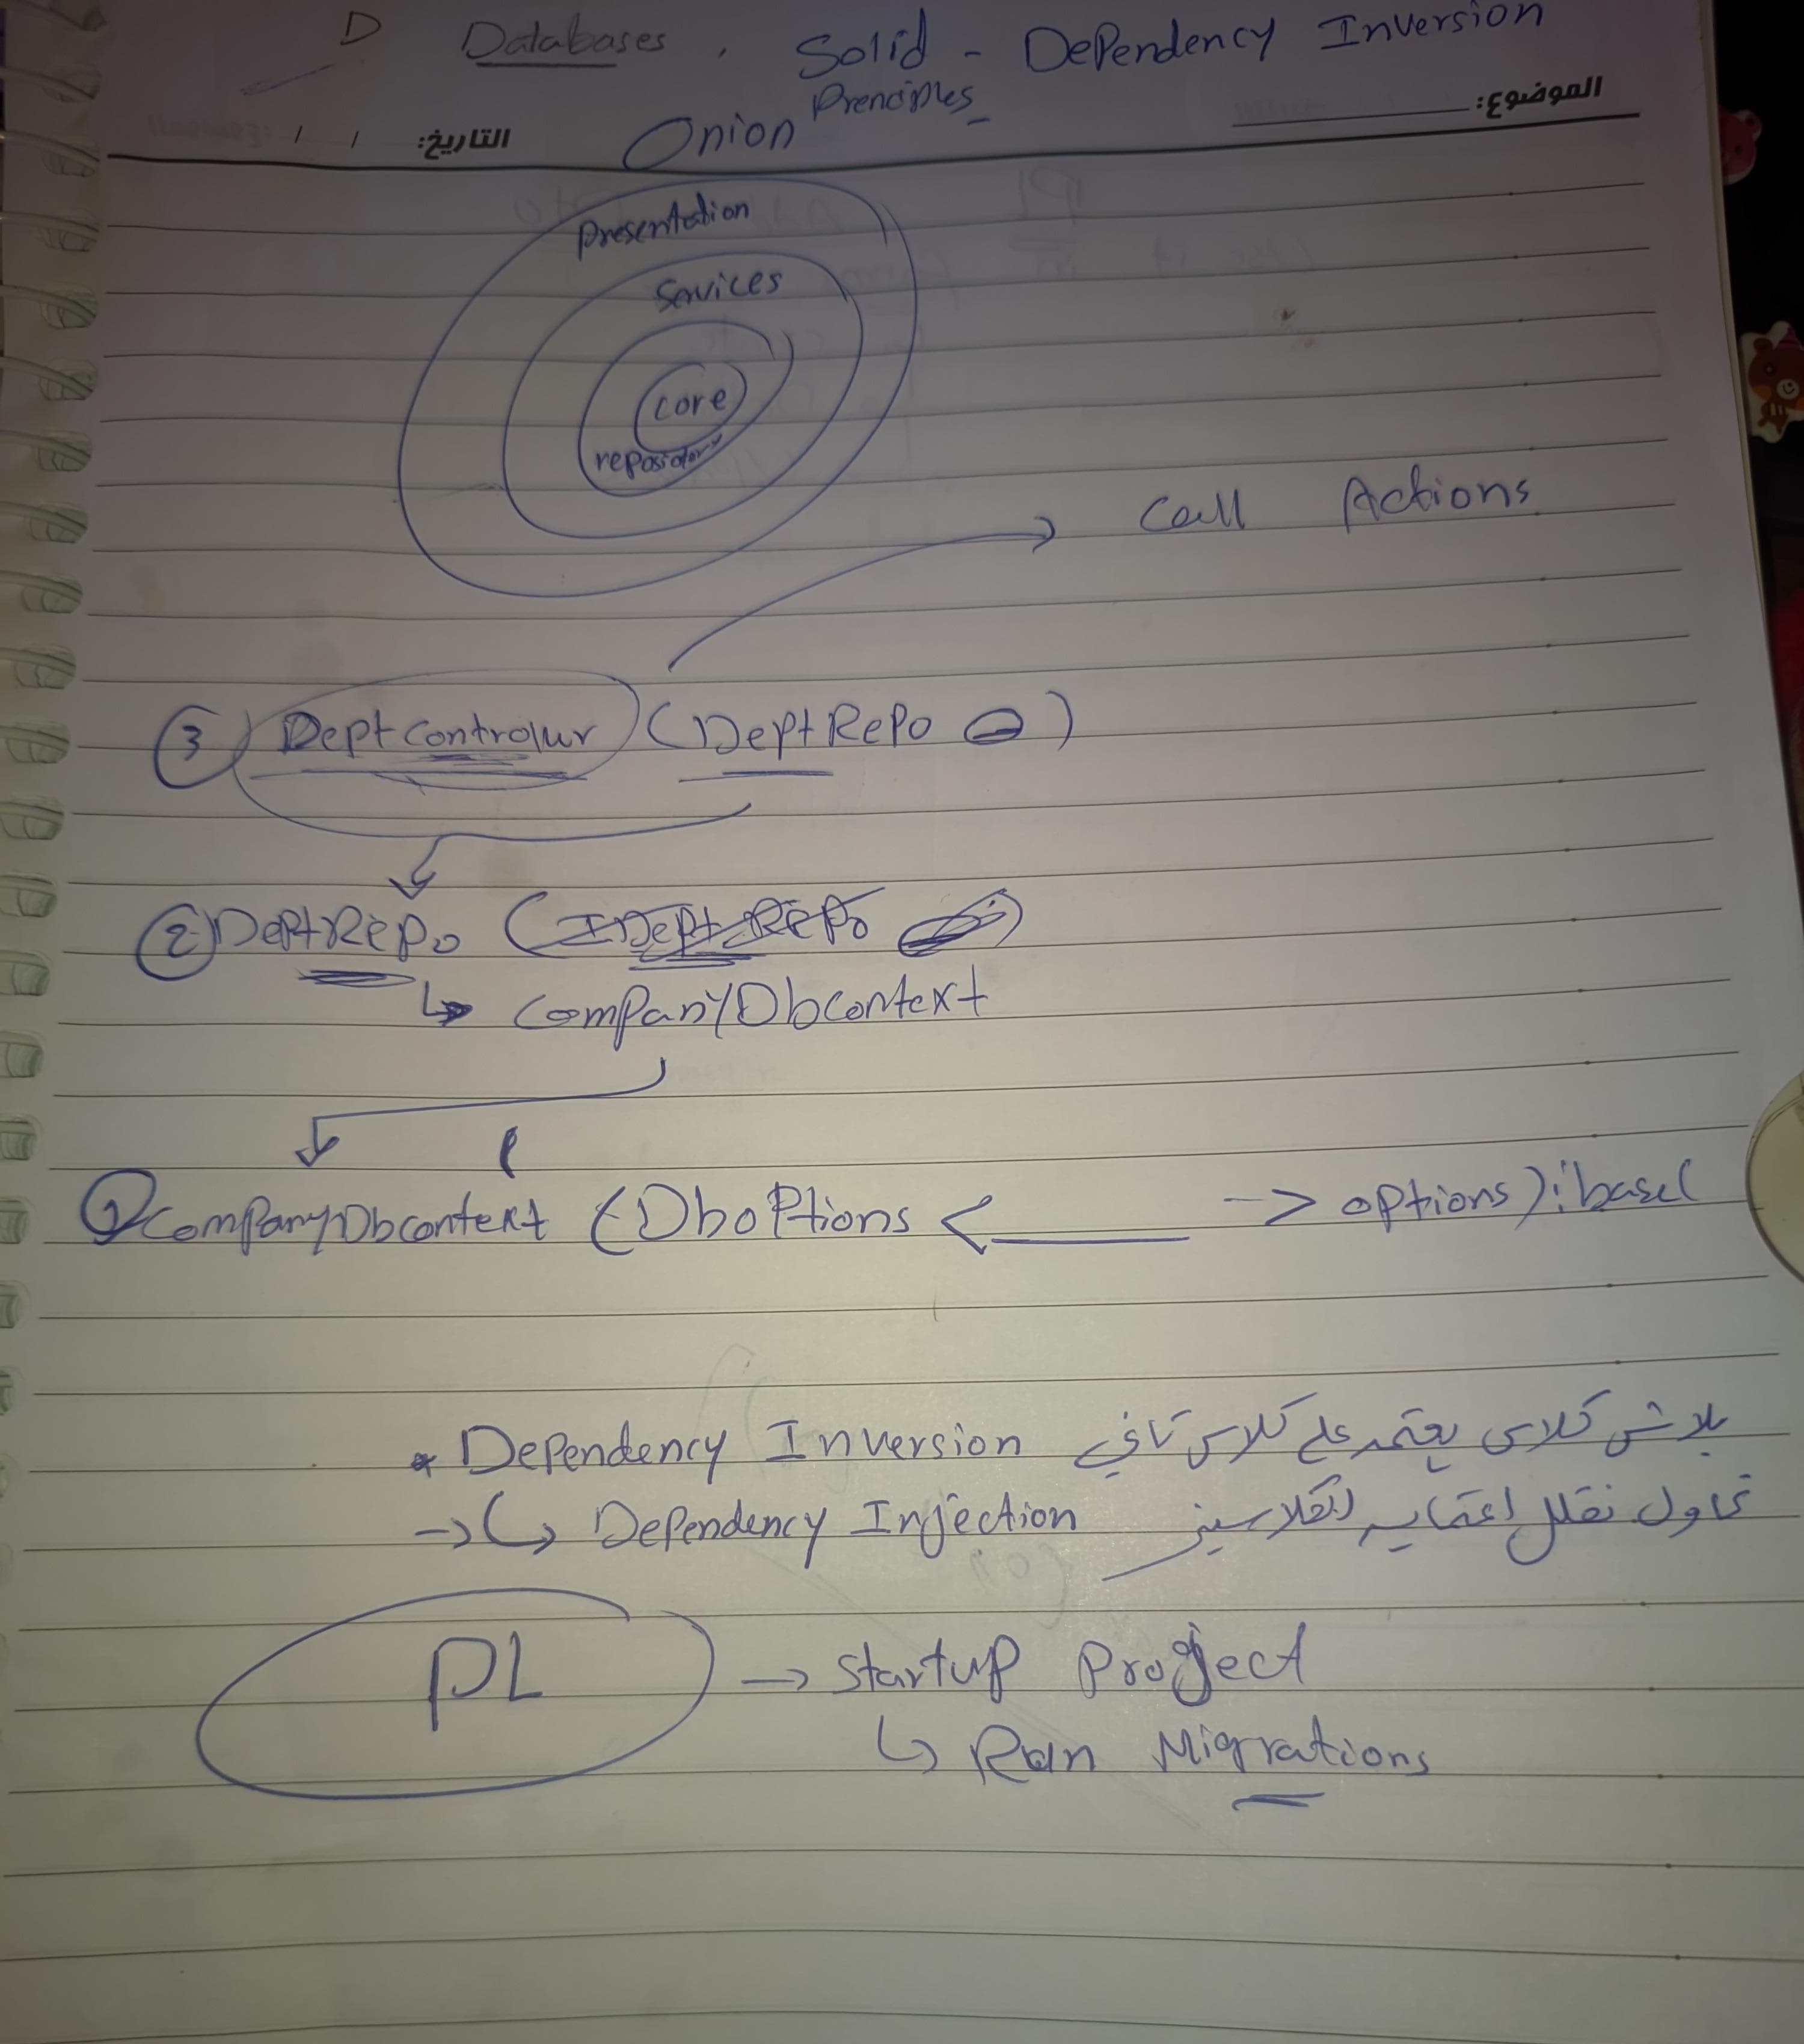 D Databases . Solid - Dependency Inversion
Prenciples
الموضوع:
التاريخ: / /
Onion
Presentation
Services
core
repository
Call Actions
3 DeptController (DeptRepo )
2 DeptRepo (IDeptRepo )
↳ CompanyDbcontext
1 CompanyDbcontext (DboPtions < -> options): base(
* Dependency Inversion بلاش كلاس يعتمد علي كلاس تاني
→ ↳ Dependency Injection نحاول نقلل اعتمادية الكلاسيز
PL → Startup Project
↳ Run Migrations